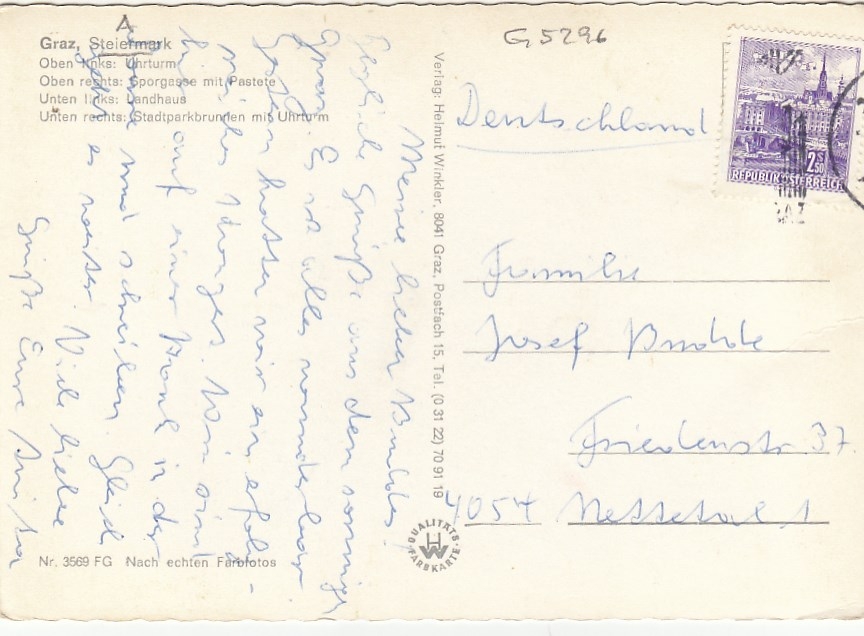 A
G5296
Graz, Steiermark
Oben links: Uhrturm
Oben rechts: Sporgasse mit Pastete
Unten links: Landhaus
Unten rechts: Stadtparkbrunnen mit Uhrturm
Meine lieben Buddes!
Herzliche Grüße aus dem sonnigen
Graz. Es ist alles wunderbar
Gestern hatten wir ein erfolg-
reiches Konzert. Wir sind
hier auf einer Bank in der
Sonne und schreiben. Gleich
geht es weiter. Viele liebe
Grüße Eure Anita
Verlag: Helmut Winkler, 8041 Graz, Postfach 15, Tel. (0 31 22) 70 91 19
QUALITÄTS-FARBKARTE
HW
Deutschland
2S 50
REPUBLIK ÖSTERREICH
Familie
Josef Budde
Friedenstr. 37
4054 Nettetal 1
Nr. 3569 FG Nach echten Farbfotos